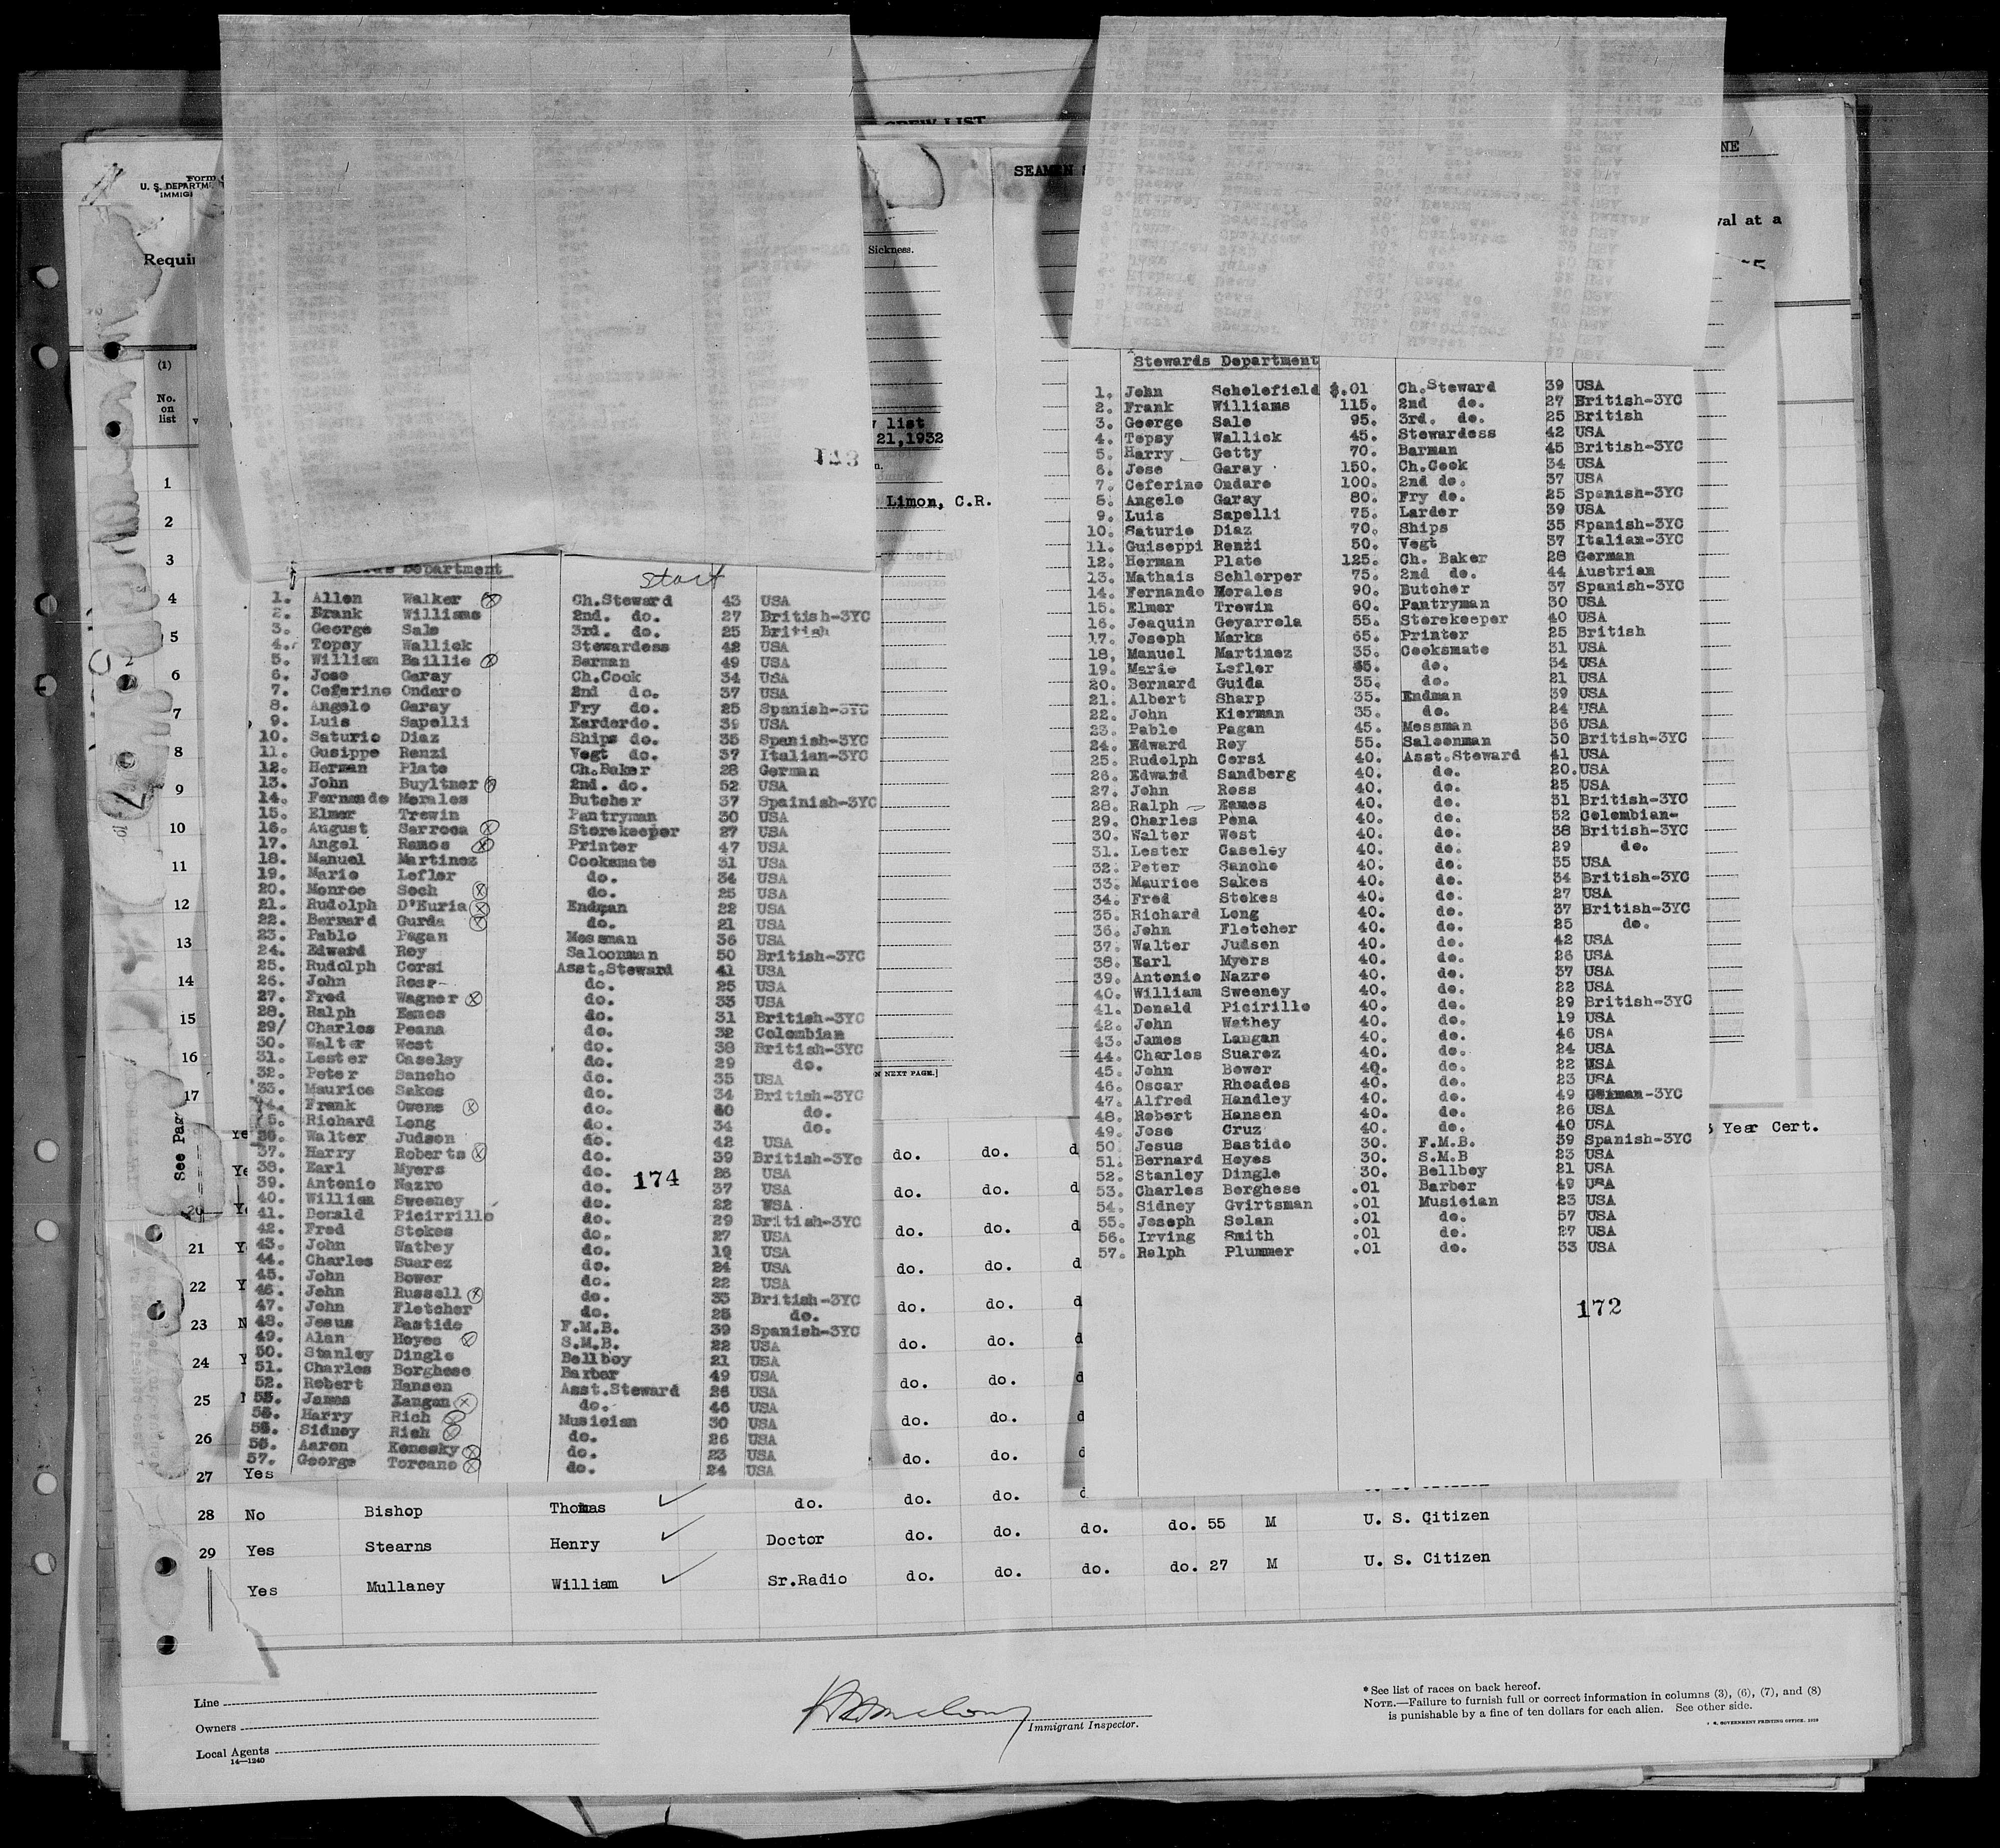 CREW LIST
Form
U. S. DEPARTM
IMMIGI
Requir
(1)
No.
on
list
Sickness.
SEAMEN
NE
val at a
list
21,1932
Limon, C.R.
123
Department
start
1. Allen Walker Ch.Steward 43 USA
2. Frank Williams 2nd. do. 27 British-3YC
3. George Sale 3rd. do. 25 British
4. Topsy Wallick Stewardess 42 USA
5. William Baillie Barman 49 USA
6. Jose Garay Ch.Cook 34 USA
7. Ceferino Ondaro 2nd do. 37 USA
8. Angelo Garay Fry do. 25 Spanish-3YC
9. Luis Sapelli Larderdo. 39 USA
10. Saturio Diaz Ships do. 35 Spanish-3YC
11. Gusippe Renzi Vegt do. 37 Italian-3YC
12. Herman Plate Ch.Baker 28 German
13. John Buyltner 2nd. do. 52 USA
14. Fernando Morales Butcher 37 Spainish-3YC
15. Elmer Trewin Pantryman 30 USA
16. August Sarroca Storekeeper 27 USA
17. Angel Ramos Printer 47 USA
18. Manuel Martinez Cooksmate 31 USA
19. Mario Lefler do. 34 USA
20. Monroe Soch do. 25 USA
21. Rudolph D'Euria Endman 22 USA
22. Bernard Gurda do. 21 USA
23. Pablo Pagan Messman 36 USA
24. Edward Roy Saloonman 50 British-3YC
25. Rudolph Corsi Asst.Steward 41 USA
26. John Ross do. 25 USA
27. Fred Wagner do. 33 USA
28. Ralph Eames do. 31 British-3YC
29/ Charles Peana do. 32 Colombian
30. Walter West do. 38 British-3YC
31. Lester Caseley do. 29 do.
32. Peter Sancho do. 35 USA
33. Maurice Sakes do. 34 British-3YC
34. Frank Owens do. 40 do.
35. Richard Long do. 34 do.
36. Walter Judson do. 42 USA
37. Harry Roberts do. 39 British-3Yc
38. Earl Myers do. 26 USA
39. Antonio Nazro do. 37 USA
40. William Sweeney do. 22 USA
41. Donald Picirrillo do. 29 British-3YC
42. Fred Stokes do. 27 USA
43. John Wathey do. 19 USA
44. Charles Suarez do. 24 USA
45. John Bower do. 22 USA
46. John Russell do. 33 British-3YC
47. John Fletcher do. 25 do.
48. Jesus Bastido F.M.B. 39 Spanish-3YC
49. Alan Heyes S.M.B. 22 USA
50. Stanley Dingle Bellboy 21 USA
51. Charles Borghese Barber 49 USA
52. Robert Hansen Asst.Steward 26 USA
53. James Langan do. 46 USA
54. Harry Rich Musician 30 USA
55. Sidney Rich do. 26 USA
56. Aaron Kenesky do. 23 USA
57. George Torcano do. 24 USA
174
Stewards Department
1. John Scholefield $.01 Ch.Steward 39 USA
2. Frank Williams 115. 2nd do. 27 British-3YC
3. George Sale 95. 3rd. do. 25 British
4. Topsy Wallick 45. Stewardess 42 USA
5. Harry Getty 70. Barman 45 British-3YC
6. Jose Garay 150. Ch.Cook 34 USA
7. Ceferino Ondaro 100. 2nd do. 37 USA
8. Angelo Garay 80. Fry do. 25 Spanish-3YC
9. Luis Sapelli 75. Larder 39 USA
10. Saturio Diaz 70. Ships 35 Spanish-3YC
11. Guiseppi Renzi 50. Vegt 37 Italian-3YC
12. Herman Plate 125. Ch. Baker 28 German
13. Mathais Schlerper 75. 2nd do. 44 Austrian
14. Fernando Morales 90. Butcher 37 Spanish-3YC
15. Elmer Trewin 60. Pantryman 30 USA
16. Joaquin Goyarrola 55. Storekeeper 40 USA
17. Joseph Marks 65. Printer 25 British
18, Manuel Martinez 35. Cooksmate 31 USA
19. Mario Lefler 35. do. 34 USA
20. Bernard Guida 35. do. 21 USA
21. Albert Sharp 35. Endman 39 USA
22. John Kierman 35. do. 24 USA
23. Pablo Pagan 45. Messman 36 USA
24. Edward Roy 55. Saloonman 50 British-3YC
25. Rudolph Corsi 40. Asst.Steward 41 USA
26. Edward Sandberg 40. do. 20.USA
27. John Ross 40. do. 25 USA
28. Ralph Eames 40. do. 31 British-3YC
29. Charles Pena 40. do. 32 Colombian-
30. Walter West 40. do. 38 British-3YC
31. Lester Caseley 40. do. 29 do.
32. Peter Sancho 40. do. 35 USA
33. Maurice Sakes 40. do. 34 British-3YC
34. Fred Stokes 40. do. 27 USA
35. Richard Long 40. do. 37 British-3YC
36. John Fletcher 40. do. 25 do.
37. Walter Judsen 40. do. 42 USA
38. Earl Myers 40. do. 26 USA
39. Antonio Nazro 40. do. 37 USA
40. William Sweeney 40. do. 22 USA
41. Donald Picirillo 40. do. 29 British-3YC
42. John Wathey 40. do. 19 USA
43. James Langan 40. do. 46 USA
44. Charles Suarez 40. do. 24 USA
45. John Bower 40. do. 22 USA
46. Oscar Rhoades 40. do. 23 USA
47. Alfred Handley 40. do. 49 German-3YC
48. Robert Hansen 40. do. 26 USA
49. Jose Cruz 40. do. 40 USA
50. Jesus Bastido 30. F.M.B. 39 Spanish-3YC
51. Bernard Heyes 30. S.M.B 23 USA
52. Stanley Dingle 30. Bellboy 21 USA
53. Charles Borghese .01 Barber 49 USA
54. Sidney Gvirtsman .01 Musician 23 USA
55. Joseph Solan .01 do. 57 USA
56. Irving Smith .01 do. 27 USA
57. Ralph Plummer .01 do. 33 USA
172
N NEXT PAGE.]
Year Cert.
See Pag
1
2
3
4
5
6
7
8
9
10
11
12
13
14
15
16
17
20
21
22
23
24
25
26
27 Yes
28 No Bishop Thomas do. do. do.
29 Yes Stearns Henry Doctor do. do. do. do. 55 M U. S. Citizen
Yes Mullaney William Sr.Radio do. do. do. do. 27 M U. S. Citizen
Line
Owners
Local Agents
14—1240
Immigrant Inspector.
* See list of races on back hereof.
NOTE.—Failure to furnish full or correct information in columns (3), (6), (7), and (8)
is punishable by a fine of ten dollars for each alien. See other side.
GOVERNMENT PRINTING OFFICE